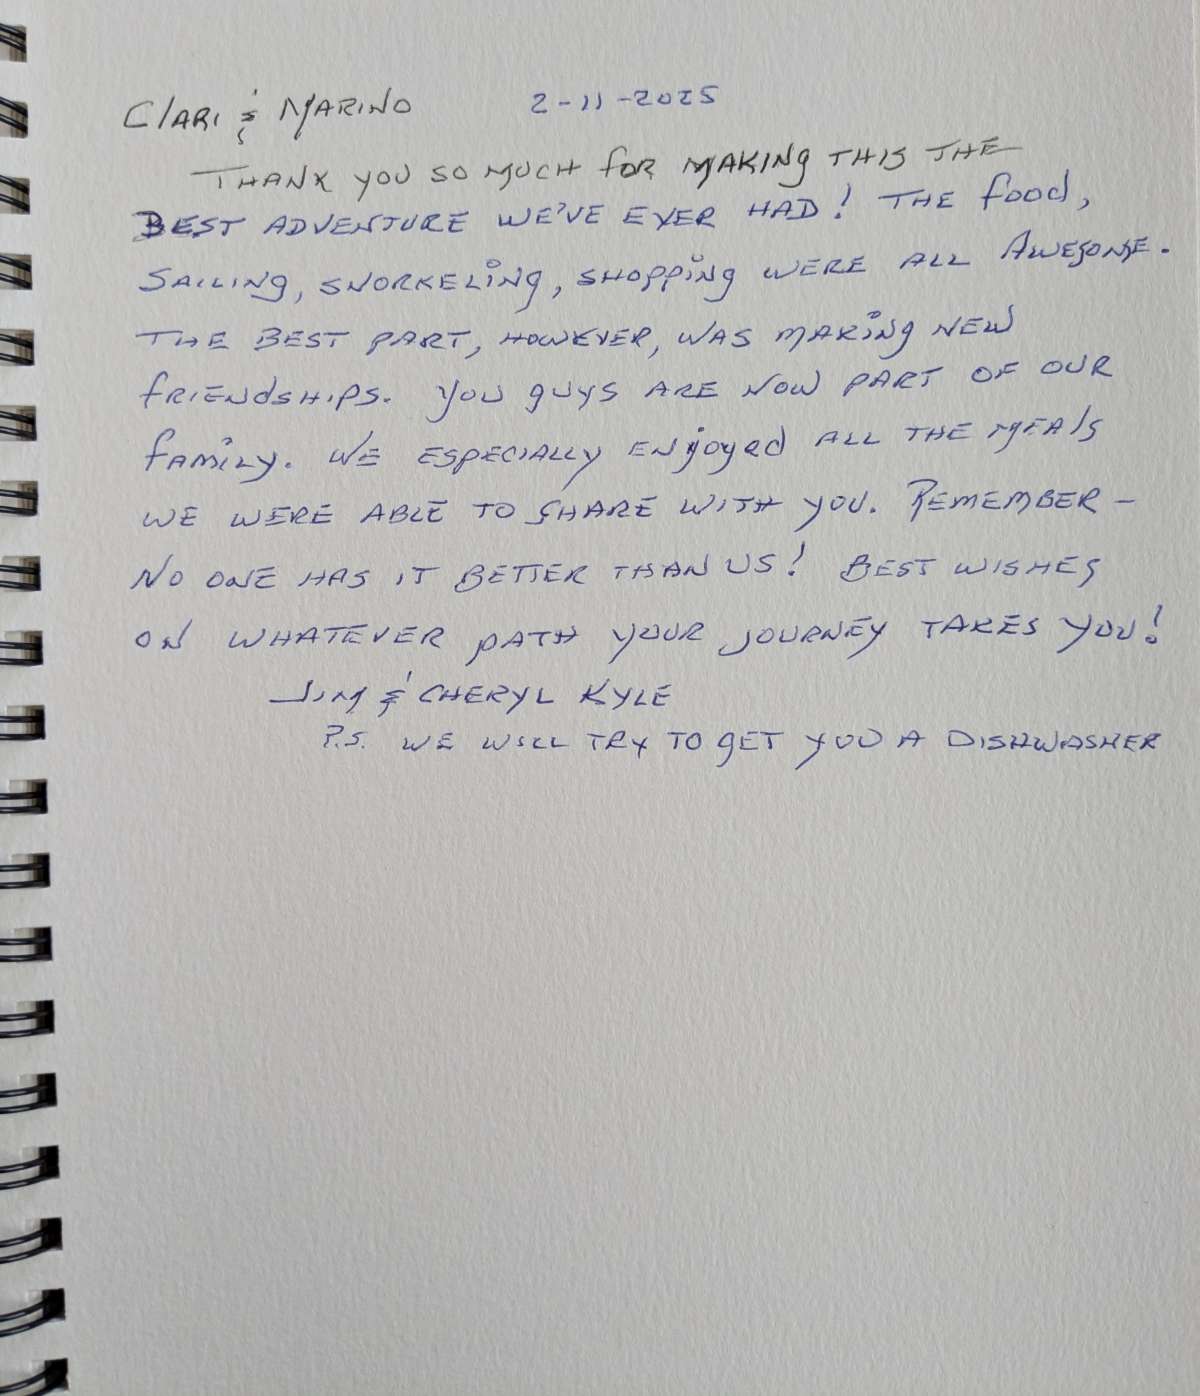 Clari & Marino 2-11-2025
Thank you so much for making this the
best adventure we've ever had! The food,
sailing, snorkeling, shopping were all awesome.
The best part, however, was making new
friendships. You guys are now part of our
family. We especially enjoyed all the meals
we were able to share with you. Remember -
No one has it better than us! Best wishes
on whatever path your journey takes you!
Jim & Cheryl Kyle
P.S. We will try to get you a dishwasher